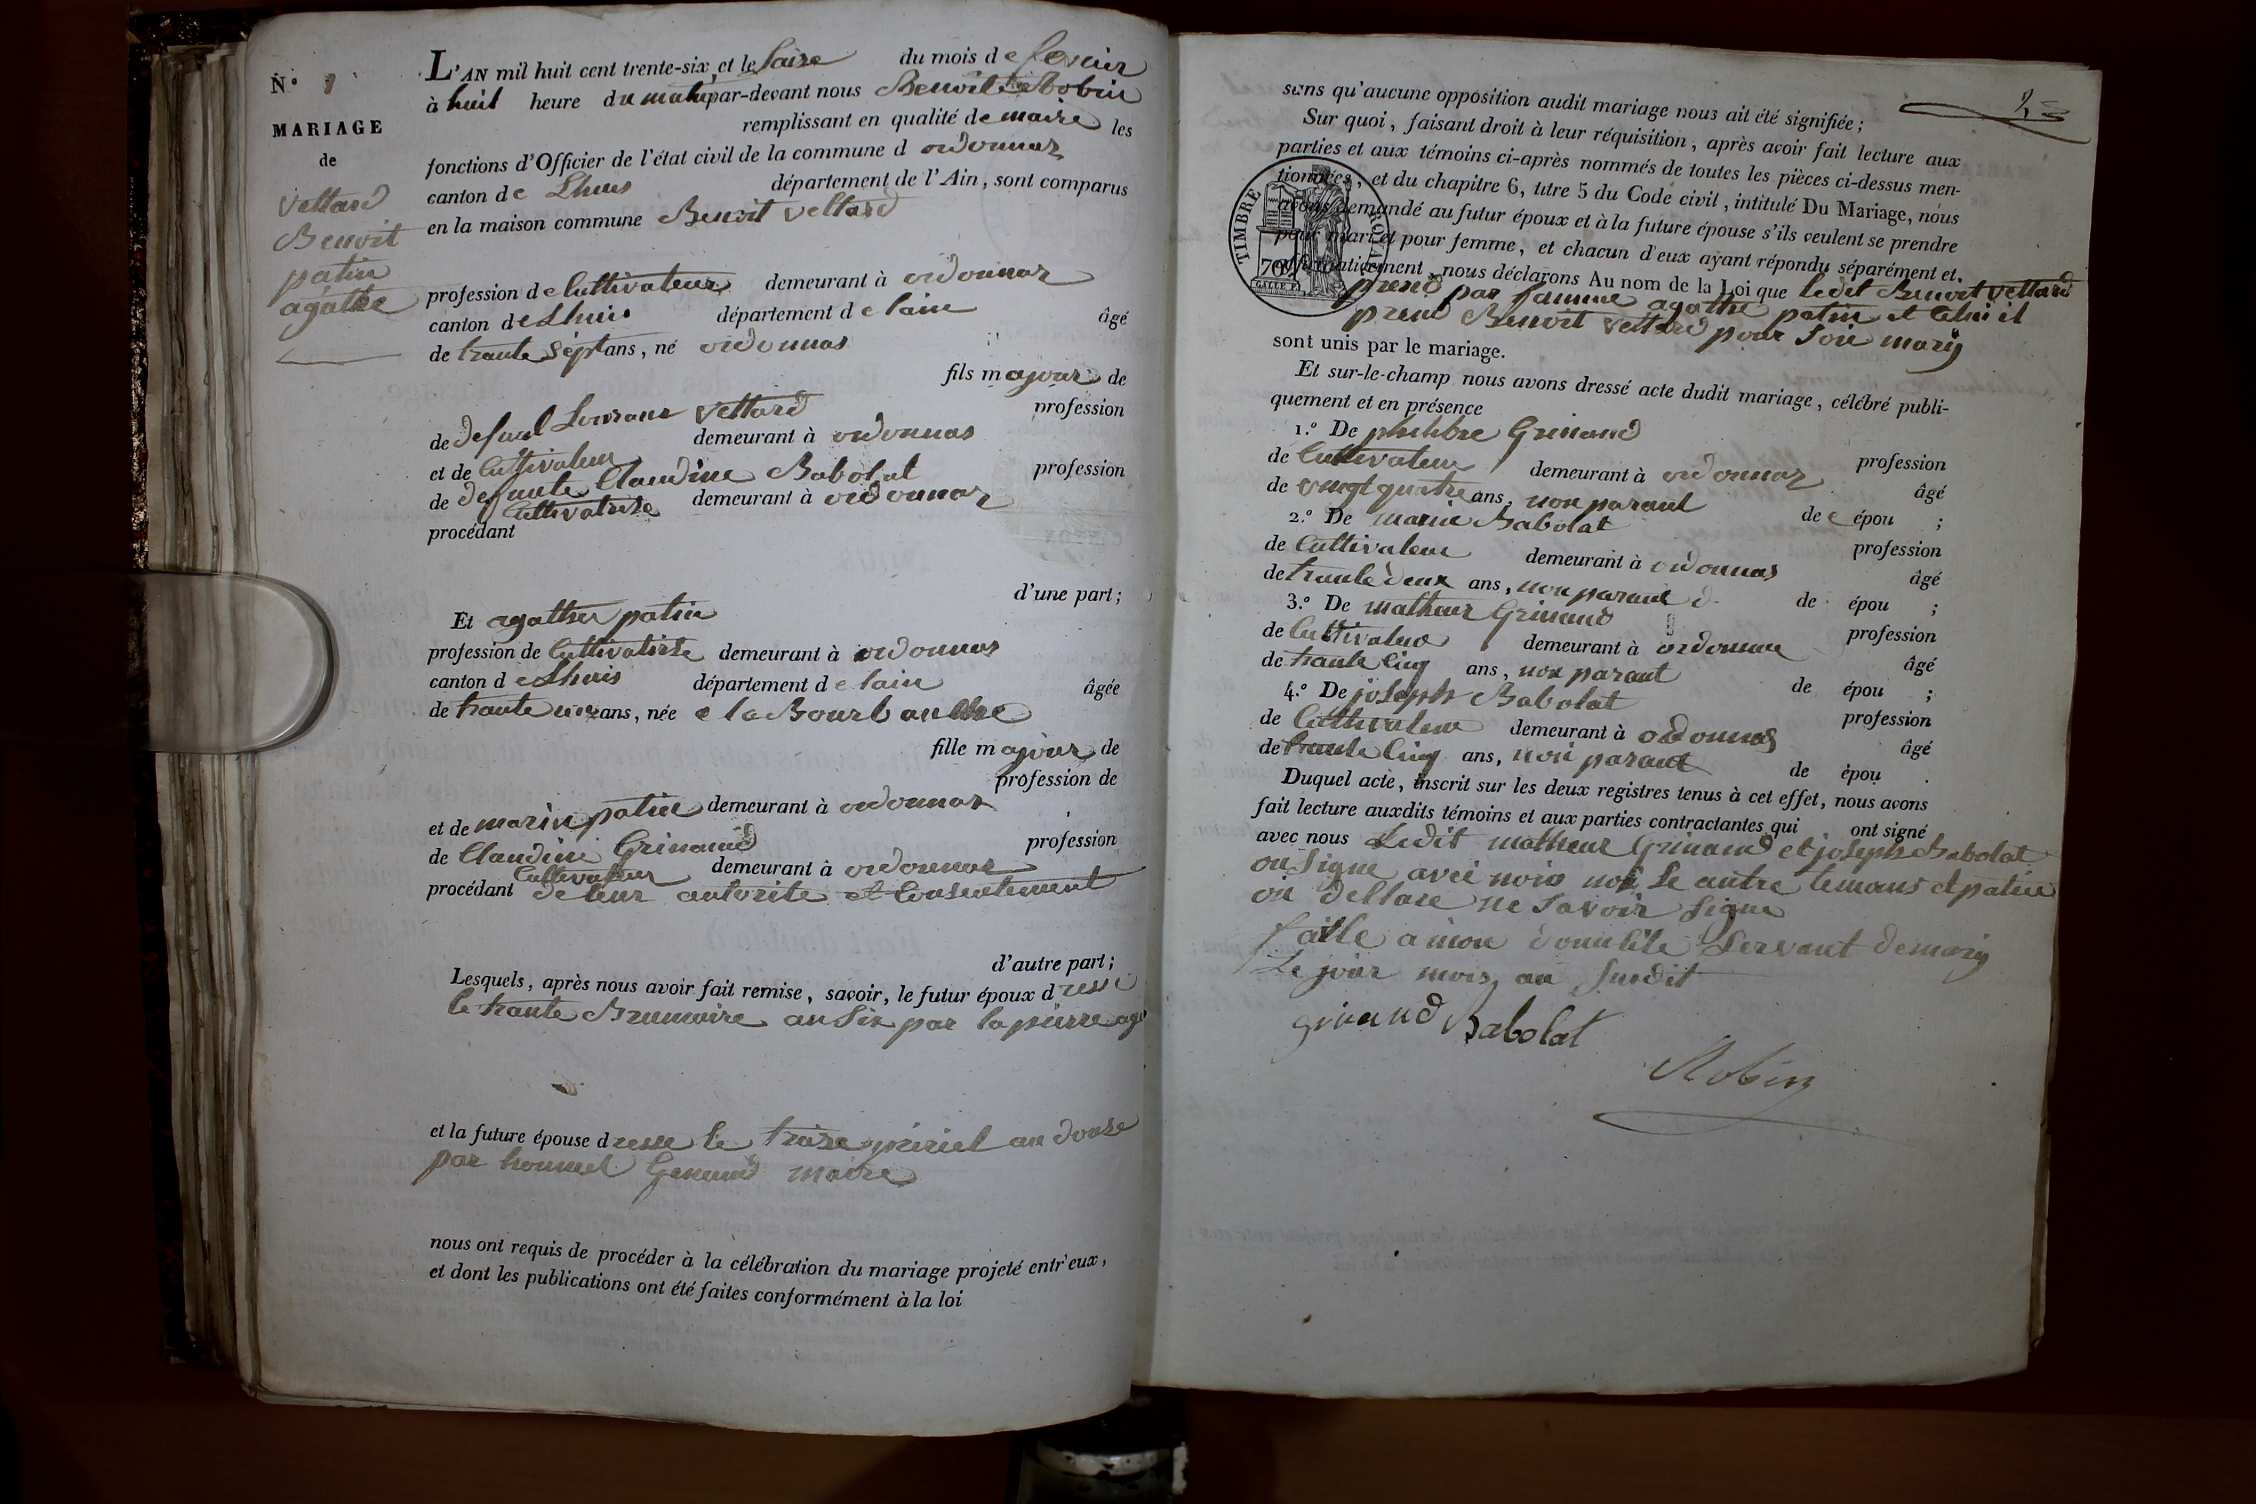 N.° 1
MARIAGE
de
vettard
Benoit
patin
agathe
L'AN mil huit cent trente-six et le saise du mois de fevrier
à huil heure du matin par-devant nous Benoit Robin
remplissant en qualité de maire les
fonctions d'Officier de l'état civil de la commune d ordonnaz
canton de Lhuis département de l'Ain, sont comparus
en la maison commune Benoit vettard
profession de Cultivateur demeurant à ordonnaz
canton de Lhuis département de lain âgé
de trante sept ans, né ordonnas
fils majour de
de defunt vettard profession
demeurant à ordonnas
et de Cultivateur
de defunte Claudine Babolat profession
de Cultivatrise demeurant à ordonnaz
procédant
d'une part;
Et agather patin
profession de Cultivatrise demeurant à ordonnas
canton de Lhuis département de lain âgée
de trante ans, née
fille majour de
profession de
et de marin patin demeurant à ordonnas
de Claudine Grinand profession
Cultivateur demeurant à ordonnas
procédant de leur autorite et Consentement
d'autre part;
Lesquels, après nous avoir fait remise, savoir, le futur époux dresse
le trante Brumaire an six par lapierre age
et la future épouse dresse le traize an douse
par maire
nous ont requis de procéder à la célébration du mariage projeté entr'eux,
et dont les publications ont été faites conformément à la loi
sans qu'aucune opposition audit mariage nous ait été signifiée;
Sur quoi, faisant droit à leur réquisition, après avoir fait lecture aux
parties et aux témoins ci-après nommés de toutes les pièces ci-dessus men-
tionnées, et du chapitre 6, titre 5 du Code civil, intitulé Du Mariage, nous
avons demandé au futur époux et à la future épouse s'ils veulent se prendre
pour mari et pour femme, et chacun d'eux ayant répondu séparément et
affirmativement, nous déclarons Au nom de la Loi que ledit Benoit vettard
prend par famme agathe patin et celui il
prend Benoit vettard pour son mary
sont unis par le mariage.
TIMBRE ROYAL
70
Et sur-le-champ nous avons dressé acte dudit mariage, célébré publi-
quement et en présence
1.° De philibre Grinand
de Cultivateur demeurant à ordonnaz profession
de vingt quatre ans, non parant âgé
de e épou ;
2.° De marin Babolat
de Cultivateur demeurant à ordonnas profession
de trante deux ans, non parant d âgé
de épou ;
3.° De matheur Grinand
de Cultivateur demeurant à ordonnas profession
de trante cinq ans, non parant âgé
de épou ;
4.° De joseph Babolat
de Cultivateur demeurant à ordonnas profession
de trante cinq ans, non parant âgé
de épou .
Duquel acte, inscrit sur les deux registres tenus à cet effet, nous avons
fait lecture auxdits témoins et aux parties contractantes qui ont signé
avec nous Ledit matheur Grinand et joseph Babolat
on signe avec nous non le autre temans et patin
on dellare ne savoir signe
faille a mon domicile servant de mary
le jour mois an susdit
grinand Babolat
Robin